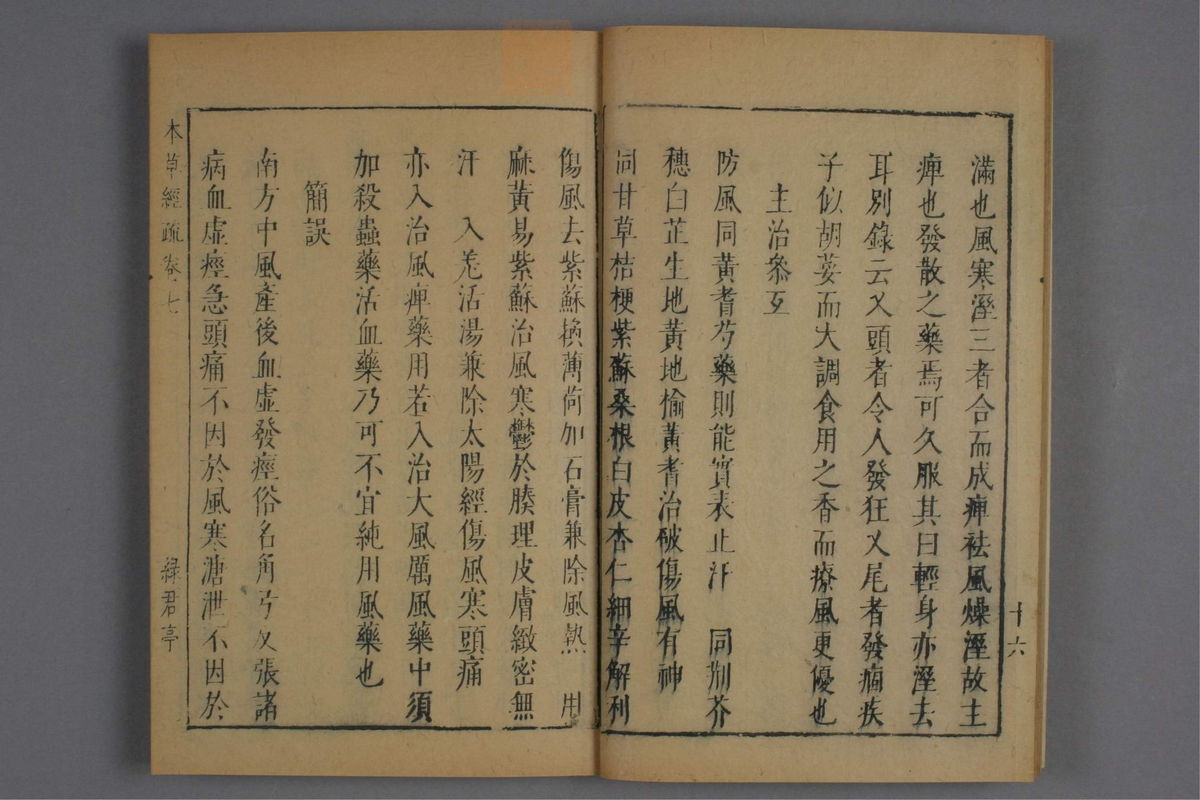 十六
滿也風寒溼三者合而成痺袪風燥溼故主
痺也發散之藥焉可久服其曰輕身亦溼去
耳別錄云叉頭者令人發狂叉尾者發痼疾
子似胡荽而大調食用之香而療風更優也
主治參互
防風同黃耆芍藥則能實表止汗 同荆芥
穗白芷生地黃地榆黃耆治破傷風有神
同甘草桔梗紫蘇桑根白皮杏仁細辛解利
傷風去紫蘇換薄荷加石膏兼除風熱 用
麻黃易紫蘇治風寒鬱於腠理皮膚緻密無
汗 入羌活湯兼除太陽經傷風寒頭痛
亦入治風痺藥用若入治大風厲風藥中須
加殺蟲藥活血藥乃可不宜純用風藥也
簡誤
南方中風產後血虛發痙俗名角弓反張諸
病血虛痙急頭痛不因於風寒溏泄不因於
本草經疏 卷七 綠君亭